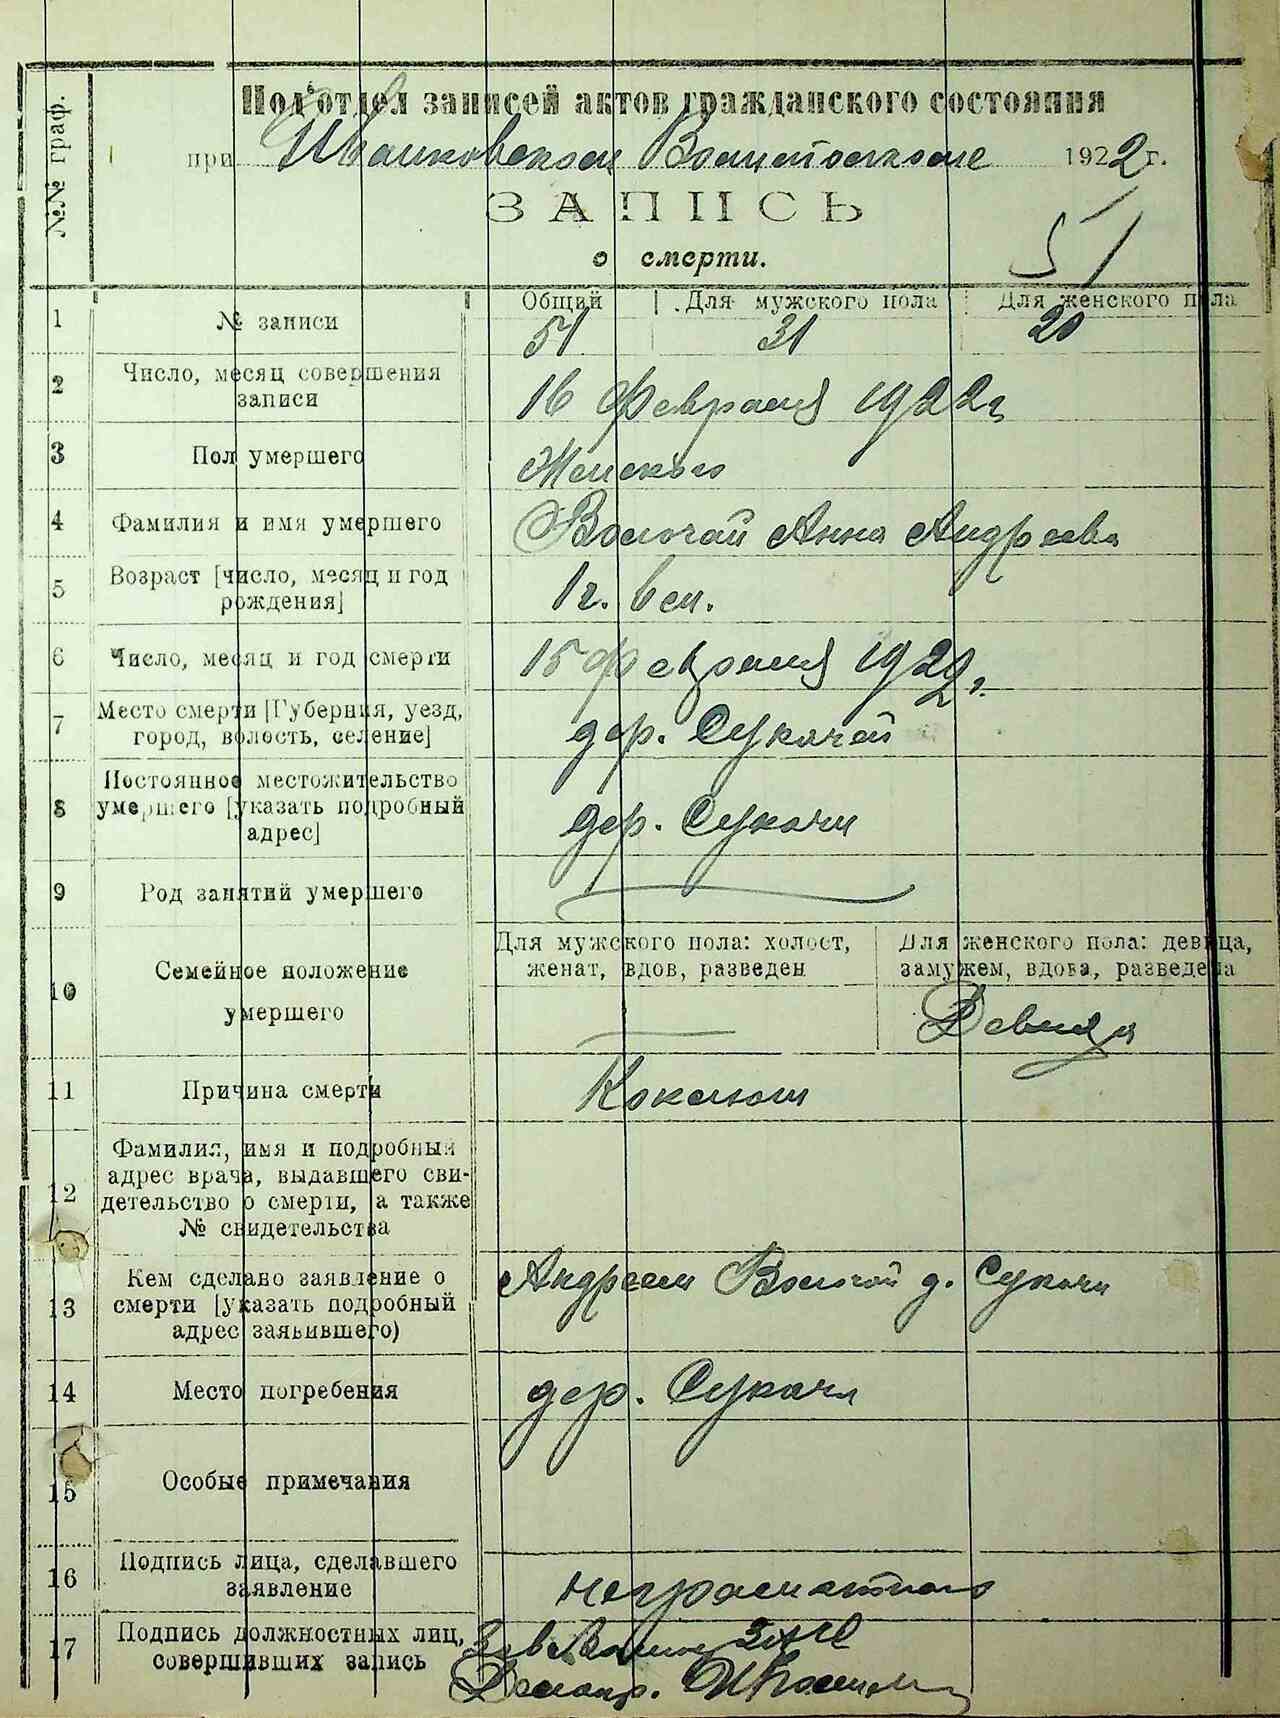 №№ граф.
Под'отдел записей актов гражданского состояния
при Иванковском Волисполкоме 1922 г.
ЗАПИСЬ
о смерти.
51
Общий | Для мужского пола | Для женского пола
1 № записи 51 31 20
2 Число, месяц совершения
записи 16 Февраля 1922 г
3 Пол умершего Женского
4 Фамилия и имя умершего Волочай Анна Андреева
5 Возраст [число, месяц и год
рождения] 1 г. 6 м.
6 Число, месяц и год смерти 15 Февраля 1922 г.
7 Место смерти [Губерния, уезд,
город, волость, селение] дер. Сукачей
8 Постоянное местожительство
умершего [указать подробный
адрес] дер. Сукачи
9 Род занятий умершего
10 Семейное положение
умершего
Для мужского пола: холост,
женат, вдов, разведен
Для женского пола: девица,
замужем, вдова, разведена
Девица
11 Причина смерти Коклюш
12 Фамилия, имя и подробный
адрес врача, выдавшего сви-
детельство о смерти, а также
№ свидетельства
13 Кем сделано заявление о
смерти [указать подробный
адрес заявившего)
Андреем Волочай д. Сукачи
14 Место погребения дер. Сукачи
15 Особые примечания
16 Подпись лица, сделавшего
заявление неграмотного
17 Подпись должностных лиц,
совершивших запись
Зав. ЗАГС
Делопр.